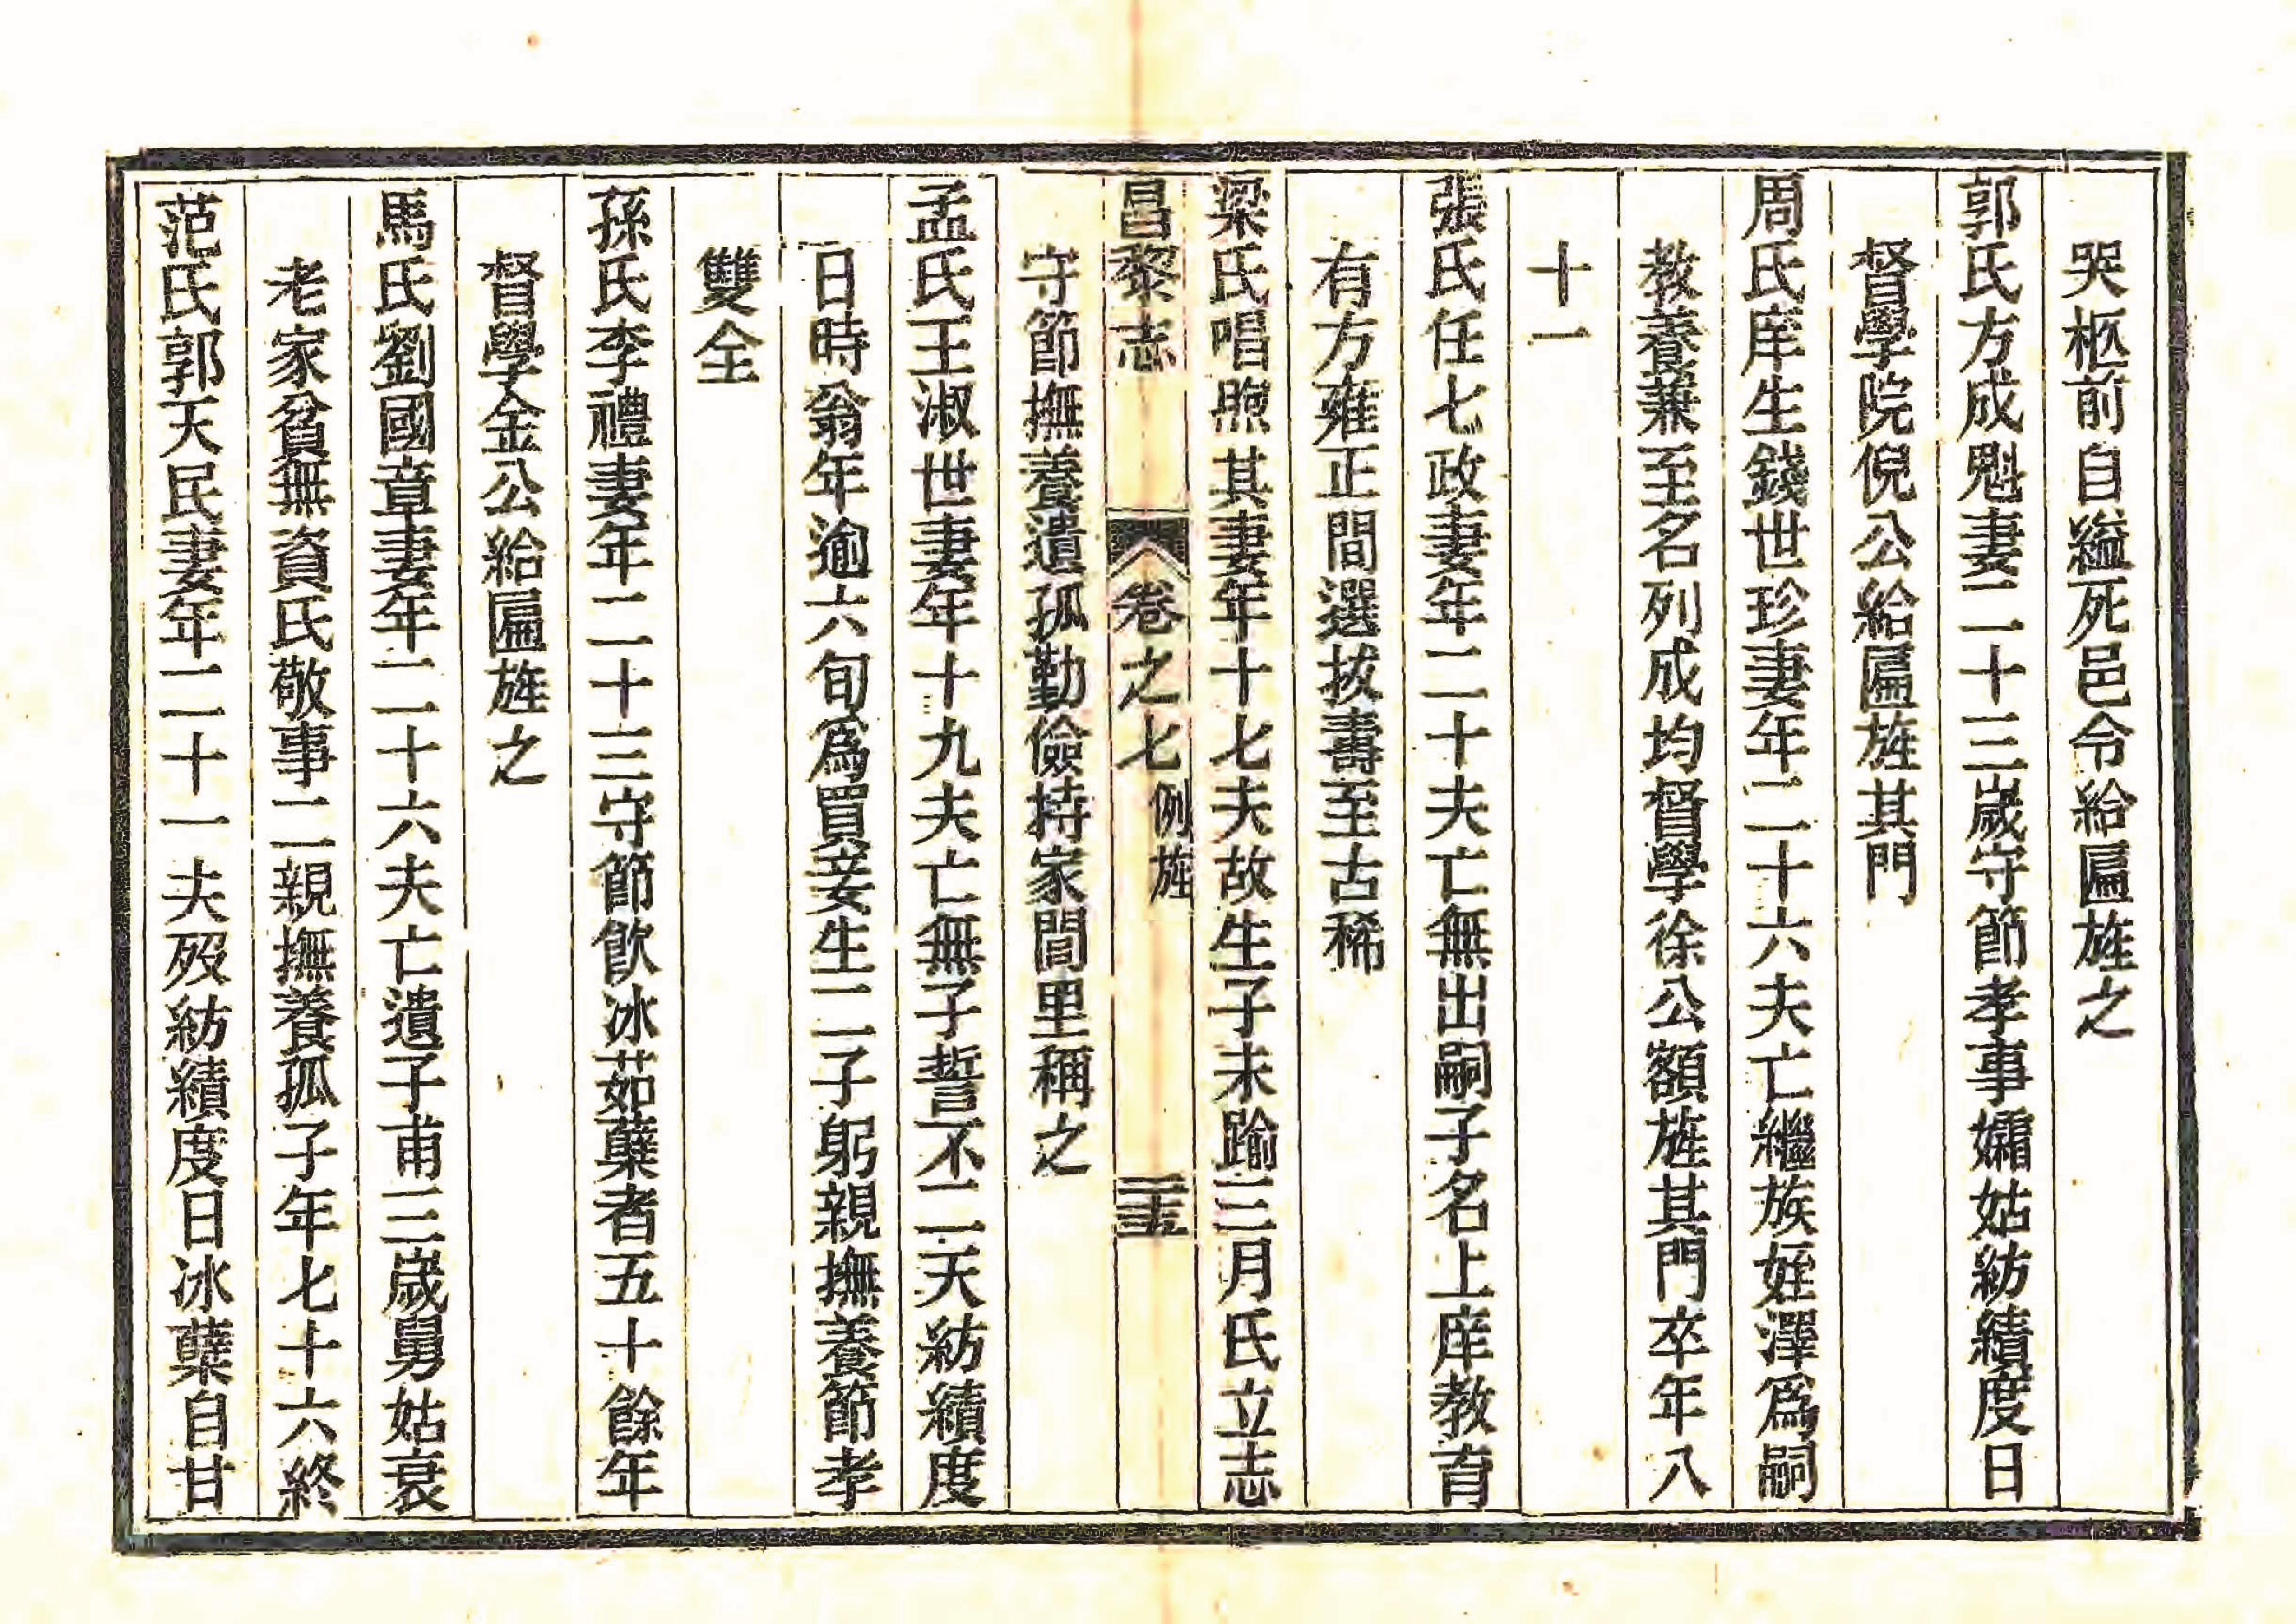 哭柩前自縊死邑令給匾旌之
郭氏方成魁妻二十三歲守節孝事孀姑紡績度日
督學院倪公給匾旌其門
周氏庠生錢世珍妻年二十六夫亡繼族姪澤爲嗣
教養兼至名列成均督學徐公額旌其門卒年八
十一
張氏任七政妻年二十夫亡無出嗣子名上庠教育
有方雍正間選拔壽至古稀
梁氏唱煦其妻年十七夫故生子未踰三月氏立志
昌黎志 卷之七 例旌 二十五
守節撫養遺孤勤儉持家閭里稱之
孟氏王淑世妻年十九夫亡無子誓不二天紡績度
日時翁年逾六旬爲買妾生二子躬親撫養節孝
雙全
孫氏李禮妻年二十三守節飲冰茹蘗者五十餘年
督學金公給匾旌之
馬氏劉國章妻年二十六夫亡遺子甫三歲舅姑衰
老家貧無資氏敬事二親撫養孤子年七十六終
范氏郭天民妻年二十一夫歿紡績度日冰蘗自甘